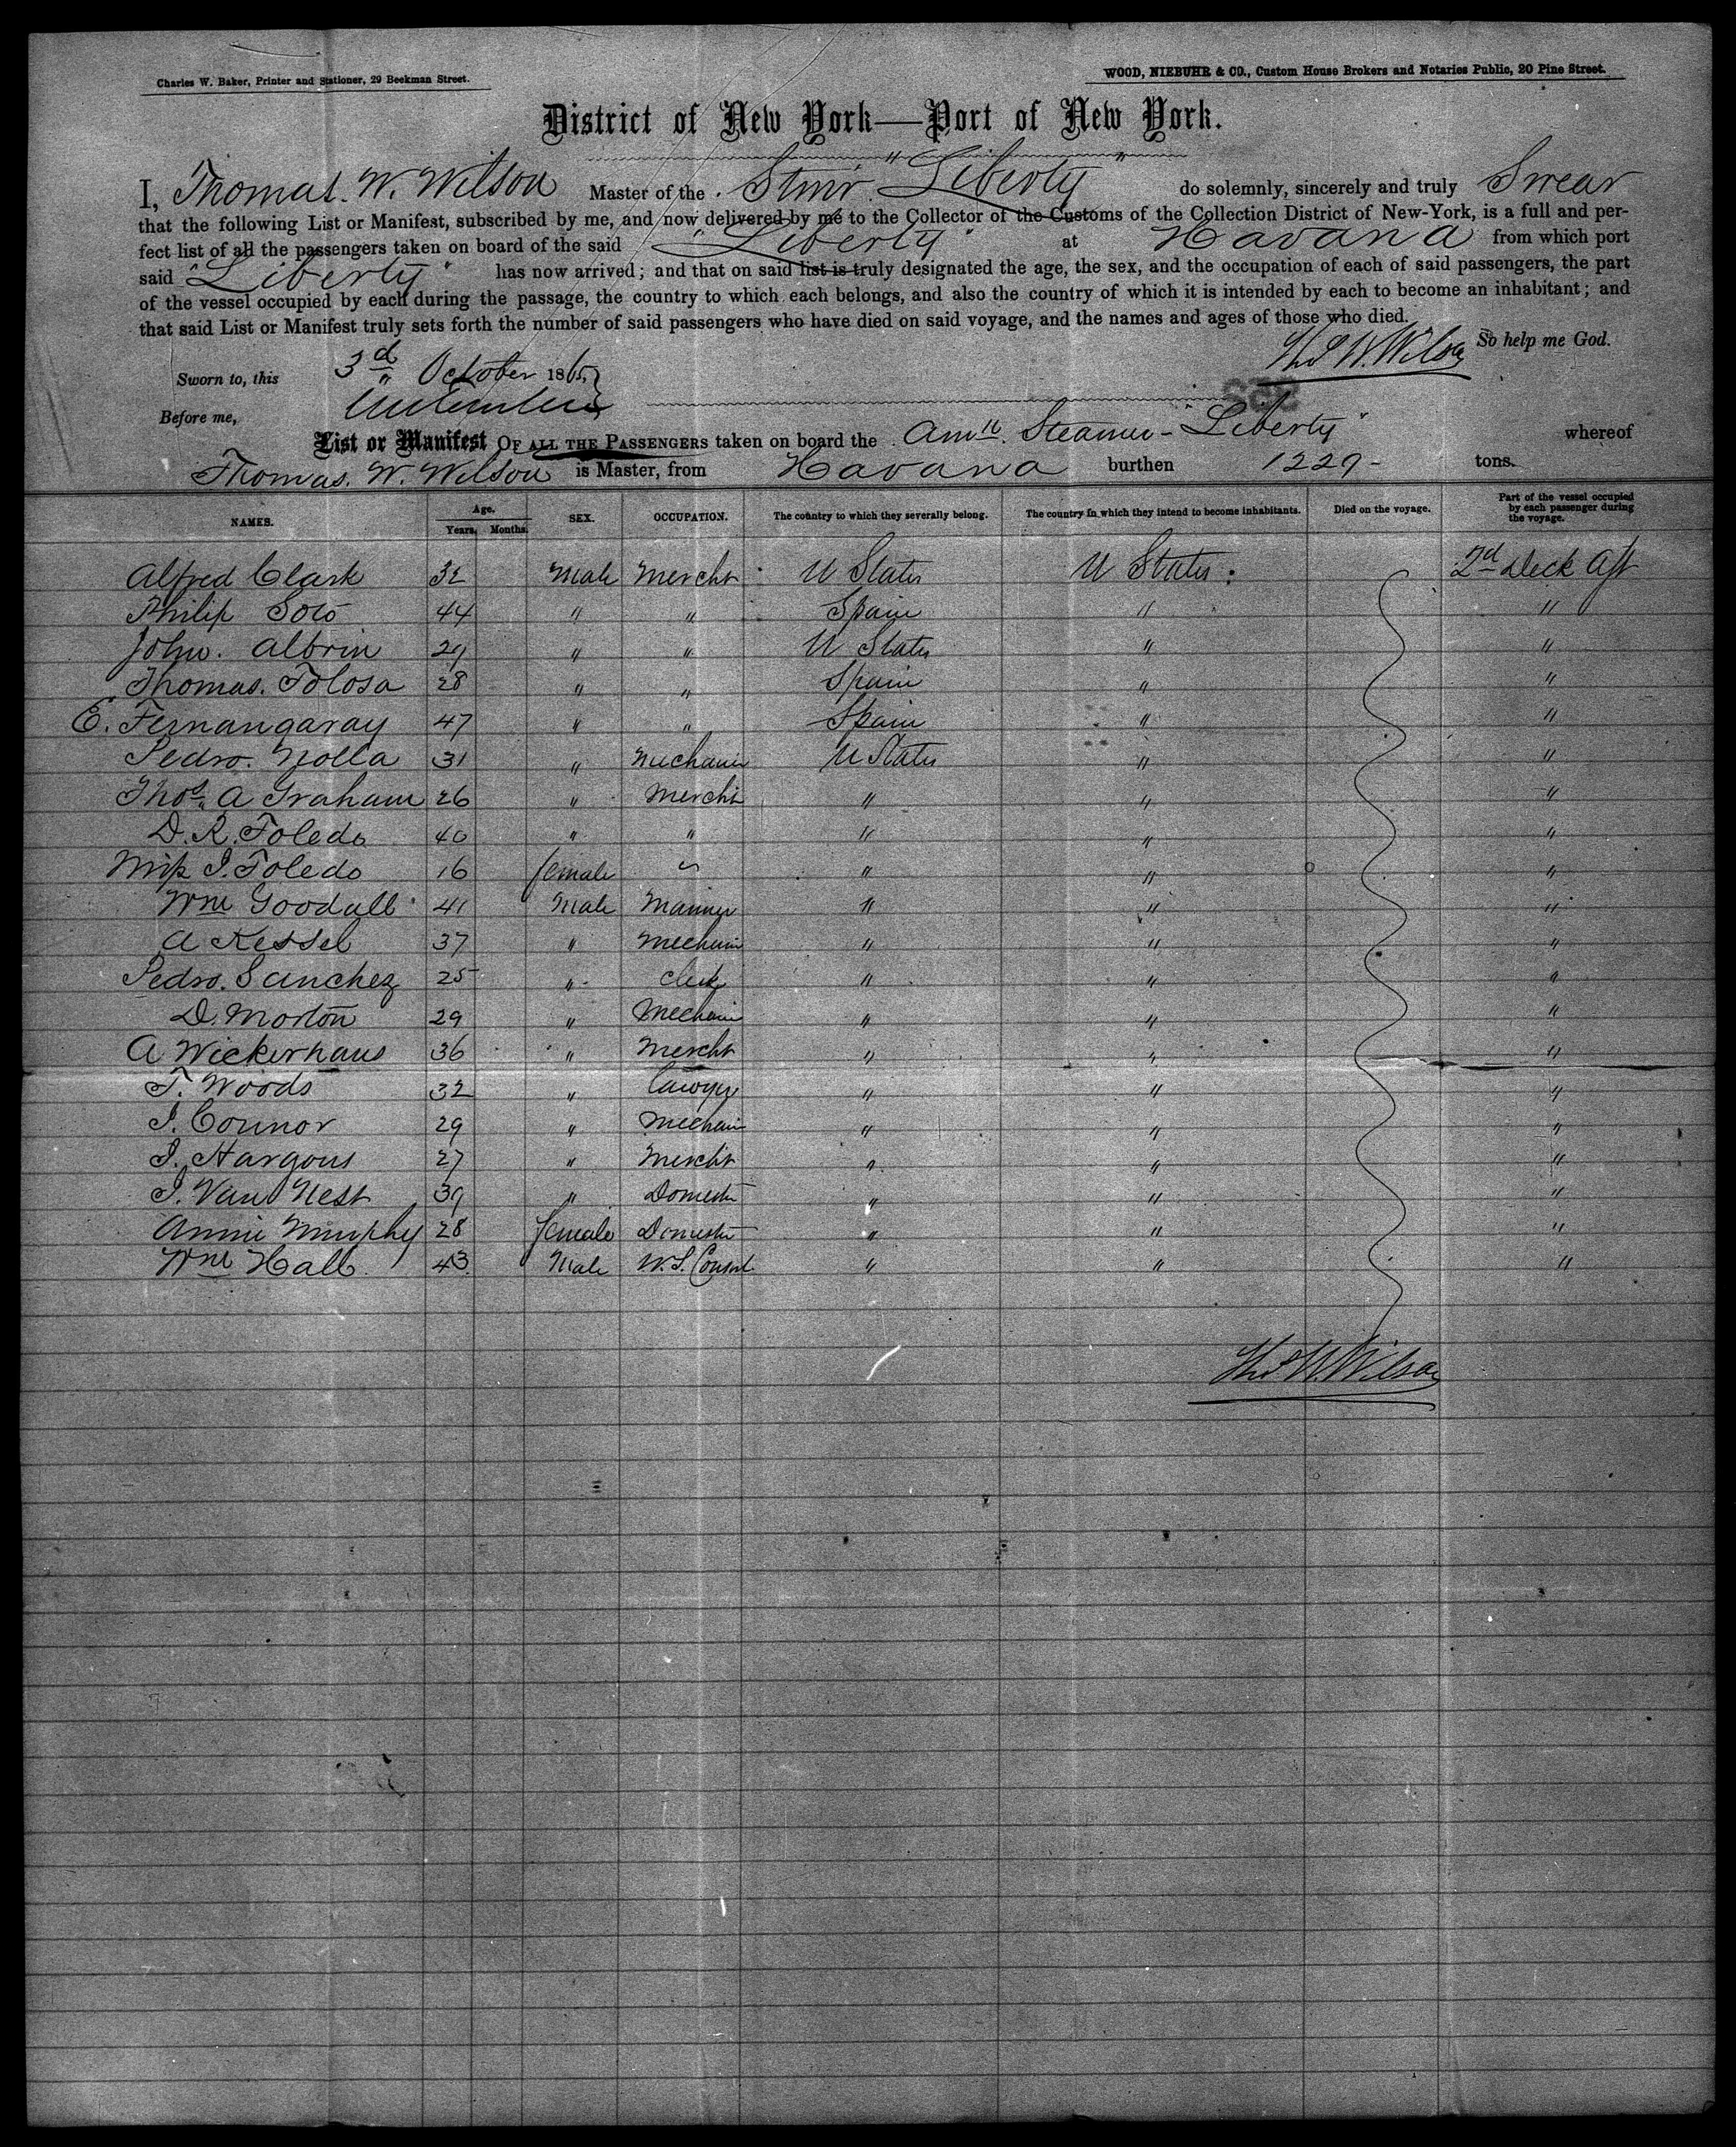 Charles W. Baker, Printer and Stationer, 29 Beekman Street.
WOOD, NIEBUHR & CO., Custom House Brokers and Notaries Public, 20 Pine Street.
District of New York—Port of New York.
I, Thomas. W. Wilson Master of the Stmr. "Liberty" do solemnly, sincerely and truly Swear
that the following List or Manifest, subscribed by me, and now delivered by me to the Collector of the Customs of the Collection District of New-York, is a full and per-
fect list of all the passengers taken on board of the said "Liberty" at Havana from which port
said "Liberty" has now arrived; and that on said list is truly designated the age, the sex, and the occupation of each of said passengers, the part
of the vessel occupied by each during the passage, the country to which each belongs, and also the country of which it is intended by each to become an inhabitant; and
that said List or Manifest truly sets forth the number of said passengers who have died on said voyage, and the names and ages of those who died.
Thos W. Wilson So help me God.
Sworn to, this 3d October 1865
Before me,
List or Manifest OF ALL THE PASSENGERS taken on board the Amn. Steamer "Liberty" whereof
Thomas. W. Wilson is Master, from Havana burthen 1229 tons.
NAMES. Age. Years. Months. SEX. OCCUPATION. The country to which they severally belong. The country in which they intend to become inhabitants. Died on the voyage. Part of the vessel occupied by each passenger during the voyage.
Alfred Clark 32 Male Mercht U States U States 2d Deck Aft
Philip Soto 44 " " Spain " "
John. Albrin 29 " " U States " "
Thomas. Tolosa 28 " " Spain " "
E. Fernangaray 47 " " Spain " "
Pedro. Nolla 31 " Mechanic U States " "
Thos. A Graham 26 " Mercht " " "
D. R. Toledo 40 " " " " "
Miss I. Toledo 16 female " " "
Wm Goodall 41 Male Mariner " " "
A Kessel 37 " Mechanic " " "
Pedro. Sanchez 25 " Clerk " " "
D. Morton 29 " Mechanic " " "
A Wickerhaus 36 " Mercht " " "
T. Woods 32 " Lawyer " " "
J. Connor 29 " Mechanic " " "
J. Hargous 27 " Mercht " " "
J. Van Nest 39 " Domestic " " "
Annie Murphy 28 female Domestic " " "
Wm Hall 43 Male U.S. Consul " " "
Thos W. Wilson